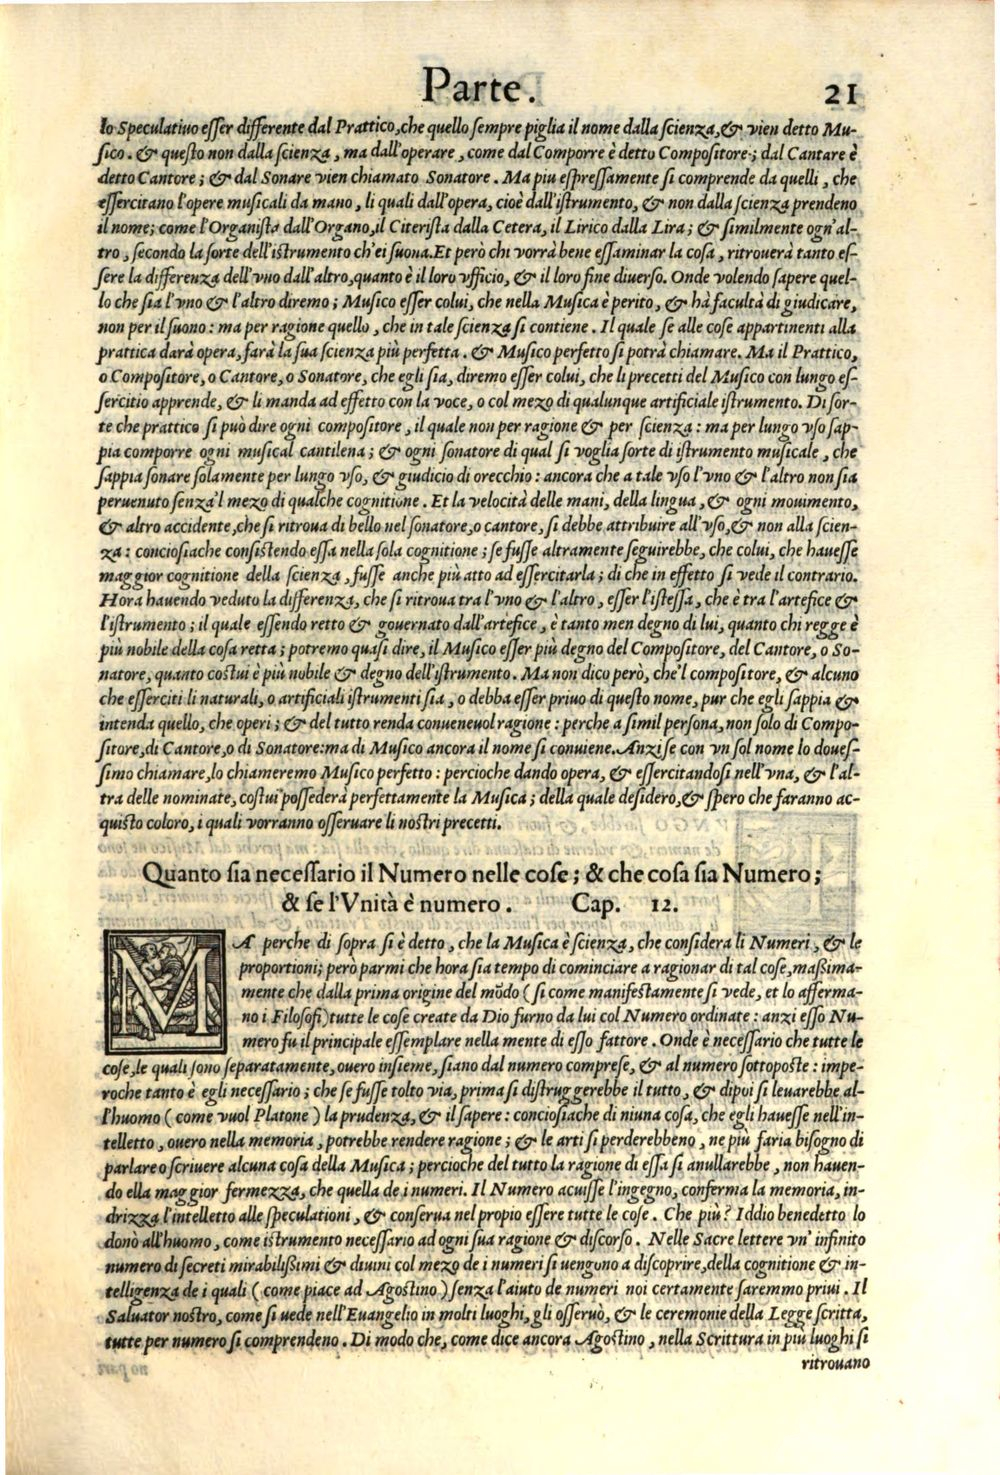 Parte. 21
lo Speculatiuo esser differente dal Prattico, che quello sempre piglia il nome dalla scienza, & vien detto Mu-
sico. & questo non dalla scienza, ma dall'operare, come dal Comporre è detto Compositore; dal Cantare è
detto Cantore; & dal Sonare vien chiamato Sonatore. Ma piu espressamente si comprende da quelli, che
essercitano l'opere musicali da mano, li quali dall'opera, cioè dall'istrumento, & non dalla scienza prendeno
il nome; come l'Organista dall'Organo, il Citerista dalla Cetera, il Lirico dalla Lira; & similmente ogn'al-
tro, secondo la sorte dell'istrumento ch'ei suona. Et però chi vorrà bene essaminar la cosa, ritrouerà tanto es-
sere la differenza dell'vno dall'altro, quanto è il loro vfficio, & il loro fine diuerso. Onde volendo sapere quel-
lo che sia l'vno & l'altro diremo; Musico esser colui, che nella Musica è perito, & hà facultà di giudicare,
non per il suono: ma per ragione quello, che in tale scienza si contiene. Il quale se alle cose appartinenti alla
prattica darà opera, farà la sua scienza più perfetta. & Musico perfetto si potrà chiamare. Ma il Prattico,
o Compositore, o Cantore, o Sonatore, che egli sia, diremo esser colui, che li precetti del Musico con lungo es-
sercitio apprende, & li manda ad effetto con la voce, o col mezo di qualunque artificiale istrumento. Di sor-
te che prattico si può dire ogni compositore, il quale non per ragione & per scienza: ma per lungo vso sap-
pia comporre ogni musical cantilena; & ogni sonatore di qual si voglia sorte di istrumento musicale, che
sappia sonare solamente per lungo vso, & giudicio di orecchio: ancora che a tale vso l'vno & l'altro non sia
peruenuto senza'l mezo di qualche cognitione. Et la velocità delle mani, della lingua, & ogni mouimento,
& altro accidente, che si ritroua di bello nel sonatore, o cantore, si debbe attribuire all'vso, & non alla scien-
za: conciosiache consistendo essa nella sola cognitione; se fusse altramente seguirebbe, che colui, che hauesse
maggior cognitione della scienza, fusse anche più atto ad essercitarla; di che in effetto si vede il contrario.
Hora hauendo veduto la differenza, che si ritroua tra l'vno & l'altro, esser l'istessa, che è tra l'artefice &
l'istrumento; il quale essendo retto & gouernato dall'artefice, è tanto men degno di lui, quanto chi regge è
più nobile della cosa retta; potremo quasi dire, il Musico esser più degno del Compositore, del Cantore, o So-
natore, quanto costui è più nobile & degno dell'istrumento. Ma non dico però, che'l compositore, & alcuno
che esserciti li naturali, o artificiali istrumenti sia, o debba esser priuo di questo nome, pur che egli sappia &
intenda quello, che operi; & del tutto renda conueneuol ragione: perche a simil persona, non solo di Compo-
sitore, di Cantore, o di Sonatore: ma di Musico ancora il nome si conuiene. Anzi se con vn sol nome lo doues-
simo chiamare, lo chiameremo Musico perfetto: percioche dando opera, & essercitandosi nell'vna, & l'al-
tra delle nominate, costui possederà perfettamente la Musica; della quale desidero, & spero che faranno ac-
quisto coloro, i quali vorranno osseruare li nostri precetti.
Quanto sia necessario il Numero nelle cose; & che cosa sia Numero;
& se l'Vnità è numero. Cap. 12.
MA perche di sopra si è detto, che la Musica è scienza, che considera li Numeri, & le
proportioni; però parmi che hora sia tempo di cominciare a ragionar di tal cose, massima-
mente che dalla prima origine del mõdo (si come manifestamente si vede, et lo afferma-
no i Filosofi) tutte le cose create da Dio furno da lui col Numero ordinate: anzi esso Nu-
mero fu il principale essemplare nella mente di esso fattore. Onde è necessario che tutte le
cose, le quali sono separatamente, ouero insieme, siano dal numero comprese, & al numero sottoposte: impe-
roche tanto è egli necessario; che se fusse tolto via, prima si distruggerebbe il tutto, & dipoi si leuarebbe al-
l'huomo (come vuol Platone) la prudenza, & il sapere: conciosiache di niuna cosa, che egli hauesse nell'in-
telletto, ouero nella memoria, potrebbe rendere ragione; & le arti si perderebbeno, ne più faria bisogno di
parlare o scriuere alcuna cosa della Musica; percioche del tutto la ragione di essa si anullarebbe, non hauen-
do ella maggior fermezza, che quella de i numeri. Il Numero acuisse l'ingegno, conferma la memoria, in-
drizza l'intelletto alle speculationi, & conserua nel propio essere tutte le cose. Che più? Iddio benedetto lo
donò all'huomo, come istrumento necessario ad ogni sua ragione & discorso. Nelle Sacre lettere vn' infinito
numero di secreti mirabilissimi & diuini col mezo de i numeri si uengono a discoprire, della cognitione & in-
telligenza de i quali (come piace ad Agostino) senza l'aiuto de numeri noi certamente saremmo priui. Il
Saluator nostro, come si uede nell'Euangelio in molti luoghi, gli osseruò, & le ceremonie della Legge scritta,
tutte per numero si comprendeno. Di modo che, come dice ancora Agostino, nella Scrittura in più luoghi si
ritrouano